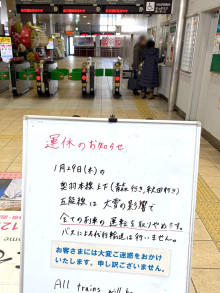 運休のお知らせ
1月29日(木)の
奥羽本線上下(青森行き,秋田行き)
五能線は 大雪の影響で
全ての列車の運転を取りやめます。
バスによる代行輸送は行いません。
お客さまには大変ご迷惑をおかけ
いたします。申し訳ございません。
All trains will be